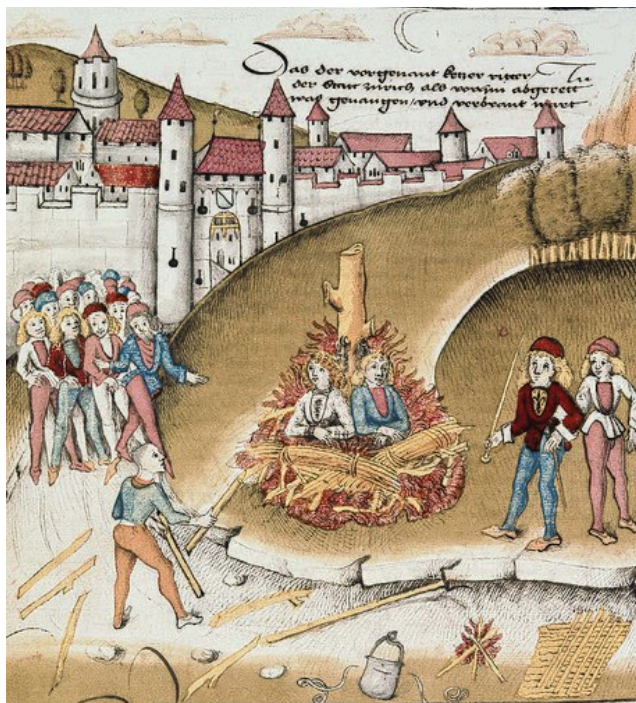 Das der vorgenant ketzer ritter Zu
der Statt zürich als vorstn abgerett
was genangen vnd verbrant wart